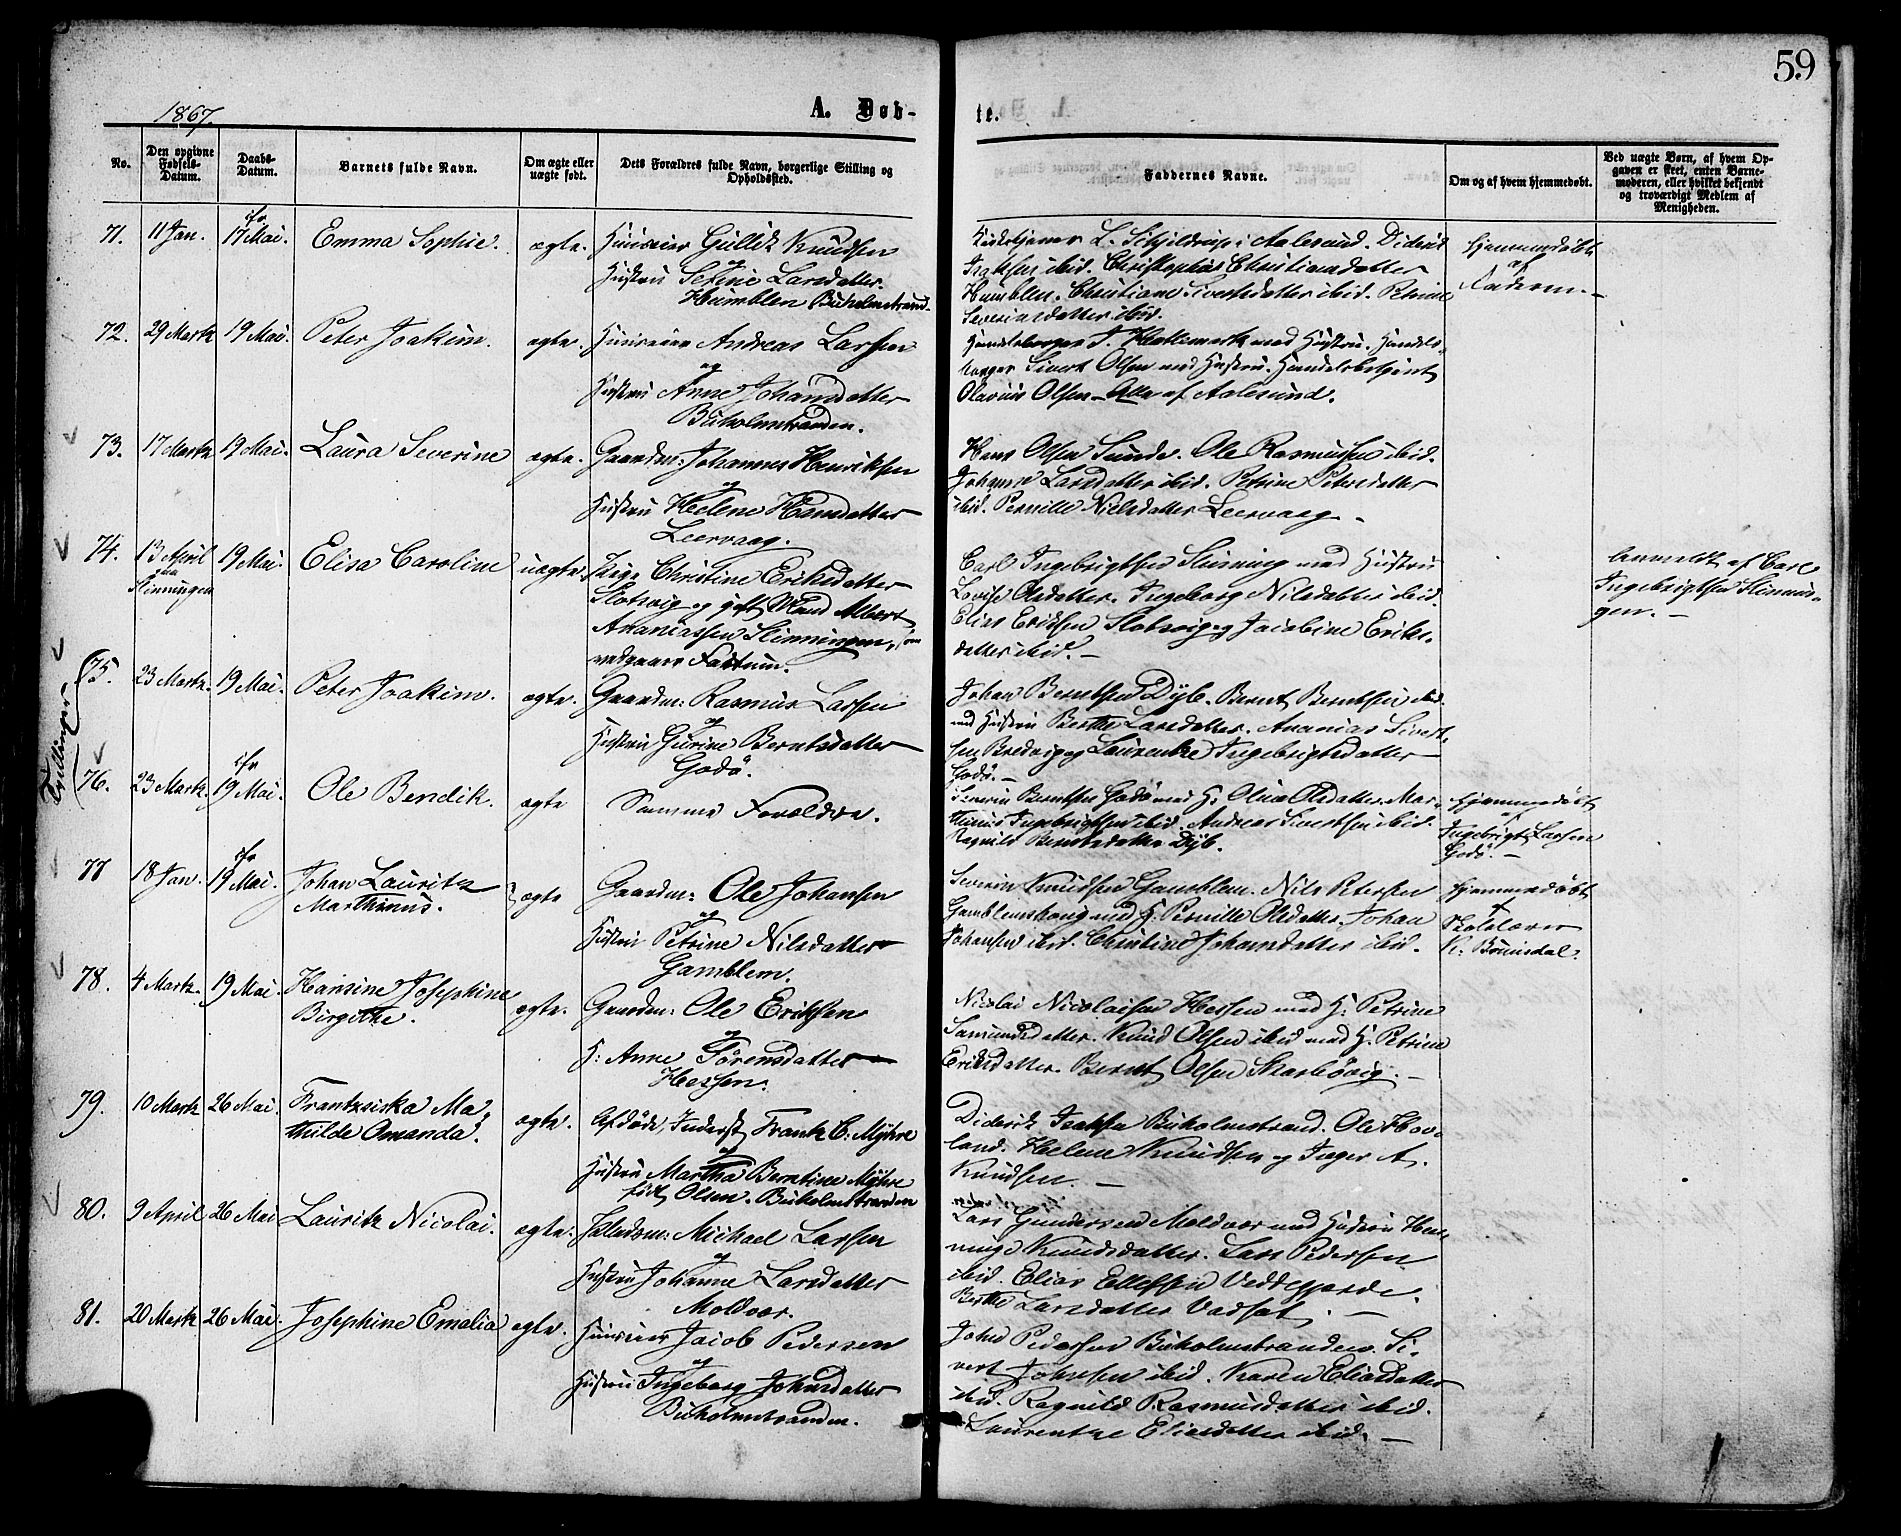 59
1867.
A. Døb-
te.
No.
Den opgivne Fødsels-Datum.
Daabs-Datum.
Barnets fulde Navn.
Om ægte eller uægte født.
Dets Forældres fulde Navn, borgerlige Stilling og Opholdssted.
Faddernes Navne.
Om og af hvem hjemmedøbt.
Ved uægte Børn, af hvem Opgaven er skeet, enten Barnemoderen, eller hvilket bekjendt og troværdigt Medlem af Menigheden.
71. 11 Jan. 17 Mai. Emma Sophie. ægte. Huuseier Gullik Knudsen
og
Hustru Serine Larsdatter.
Humblen Buholmstrand.
L. Schjeldrup i Aalesund. Diderik
Isaksen ibid. Christiansdatter
Humblen. Christiane Sivertsdatter ibid. Petrine
Severinsdatter ibid.
Hjemmedøbt
af
Faderen.
72. 29 Marts 19 Mai. Peter Joakim. ægte. Huuseier Andreas Larsen
og
Hustru Anne Johansdatter
Buholmstranden.
med Hustru. Handels-
borger Sivert Olsen med Hustru. Handelsbetjent
Olavius Olsen - Alle af Aalesund.
73. 17 Marts 19 Mai. Laura Severine ægte. Gaardm: Johannes Henriksen
og
Hustru Helene Hansdatter
Leervaag.
Hans Olsen Sunde. Ole Rasmussen ibid.
Johanne Larsdatter ibid. Petrine Petersdatter
ibid. Pernille Nielsdatter Leervaag -
74. 13 April 19 Mai. Elisa Caroline uægte. Pige Christine Eriksdatter
paa Slinningen
Slotsvig og gift Mand Albert
Ananiassen Slinningen, som
vedgaaer Factum.
Carl Ingebrigtsen Slinning med Hustru
Lovise Olsdatter. Ingeborg Nilsdatter ibid.
Elias Eriksen Slotsvig og Jacobine Eriks-
datter ibid. -
Anmeldt af Carl
Ingebrigtsen Slinnin-
gen. -
Tvillinger
75. 23 Marts. 19 Mai. Peter Joakim. ægte. Gaardm: Rasmus Larsen
og
Hustru Gurine Berntsdatter
Godø.
Johan Berntsen Dyb. Bernt Berntsen ibid.
med Hustru Berthe Larsdatter. Ananias Sivert-
sen Bredvig og Laurentze Ingebrigtsdatter
Godø. -
76. 23 Marts. 19 Mai. Ole Bendik. ægte Samme Forældre.
Severin Berntsen Godø med H: Oline Olsdatter. Mar-
thinus Ingebrigtsen ibid. Andreas Sivertsen ibid.
Ragnild Berntsdatter Dyb.
Hjemmedøbt
af
Ingebrigt Larsen
Godø. -
77 18 Jan. 19 Mai. Johan Lauritz
Marthinus. ægte Gaardm: Ole Johansen
og
Hustru Petrine Nilsdatter
Gamblem.
Severin Knudsen Gamblem. Nils Petersen
Gamblemshoug med H: Pernille Olsdatter. Johan
Johansen ibid. Christine Johansdatter ibid.
Hjemmedøbt
af
Skolelærer
K. Brunsdal.
78. 4 Marts. 19 Mai. Hansine Josephine
Birgithe. ægte. Gaardm: Ole Eriksen
og
H: Anne Sørensdatter
Hessen.
Nicolai Nicolaisen Hessen med H: Petrine
Samundsdatter. Knud Olsen ibid med H. Petrine
Eriksdatter. Bernt Olsen Skarbøvig. -
79. 10 Marts 26 Mai. Frantzsiska Ma-
thilde Omanda. ægte. Afdøde Inderst Frantz C: Myhre
og
Hustru Martha Berntine Myhre
født Olsen. Buholmstranden
Diderik Isaksen Buholmstrand. Ole Hov-
land. Helene Knudsen og Inger A.
Knudsen. -
80. 9 April 26 Mai Lauritz Nicolai. ægte. Michael Larsen
og
Hustru Johanne Larsdatter
Moldvær.
Lars Gundersen Moldvær med Hustru Hen-
Knudsdatter. Lars Pedersen
ibid. Elias Ellefsen Veddegjerde.
Berthe Larsdatter Vadset. -
81. 20 Marts 26 Mai. Josephine Emalia ægte. Huuseier Jacob Pedersen
og
Hustru Ingeborg Johnsdatter
Buholmstranden.
John Pedersen Buholmstranden. Si-
vert Johnsen ibid. Karen Eliasdatter
ibid. Ragnild Rasmusdatter ibid.
Laurentze Eliasdatter ibid. -